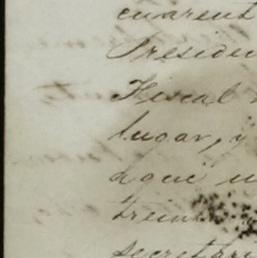 cuarent
Presiden
Fiscal
lugar, y
aqui
trein
secretari